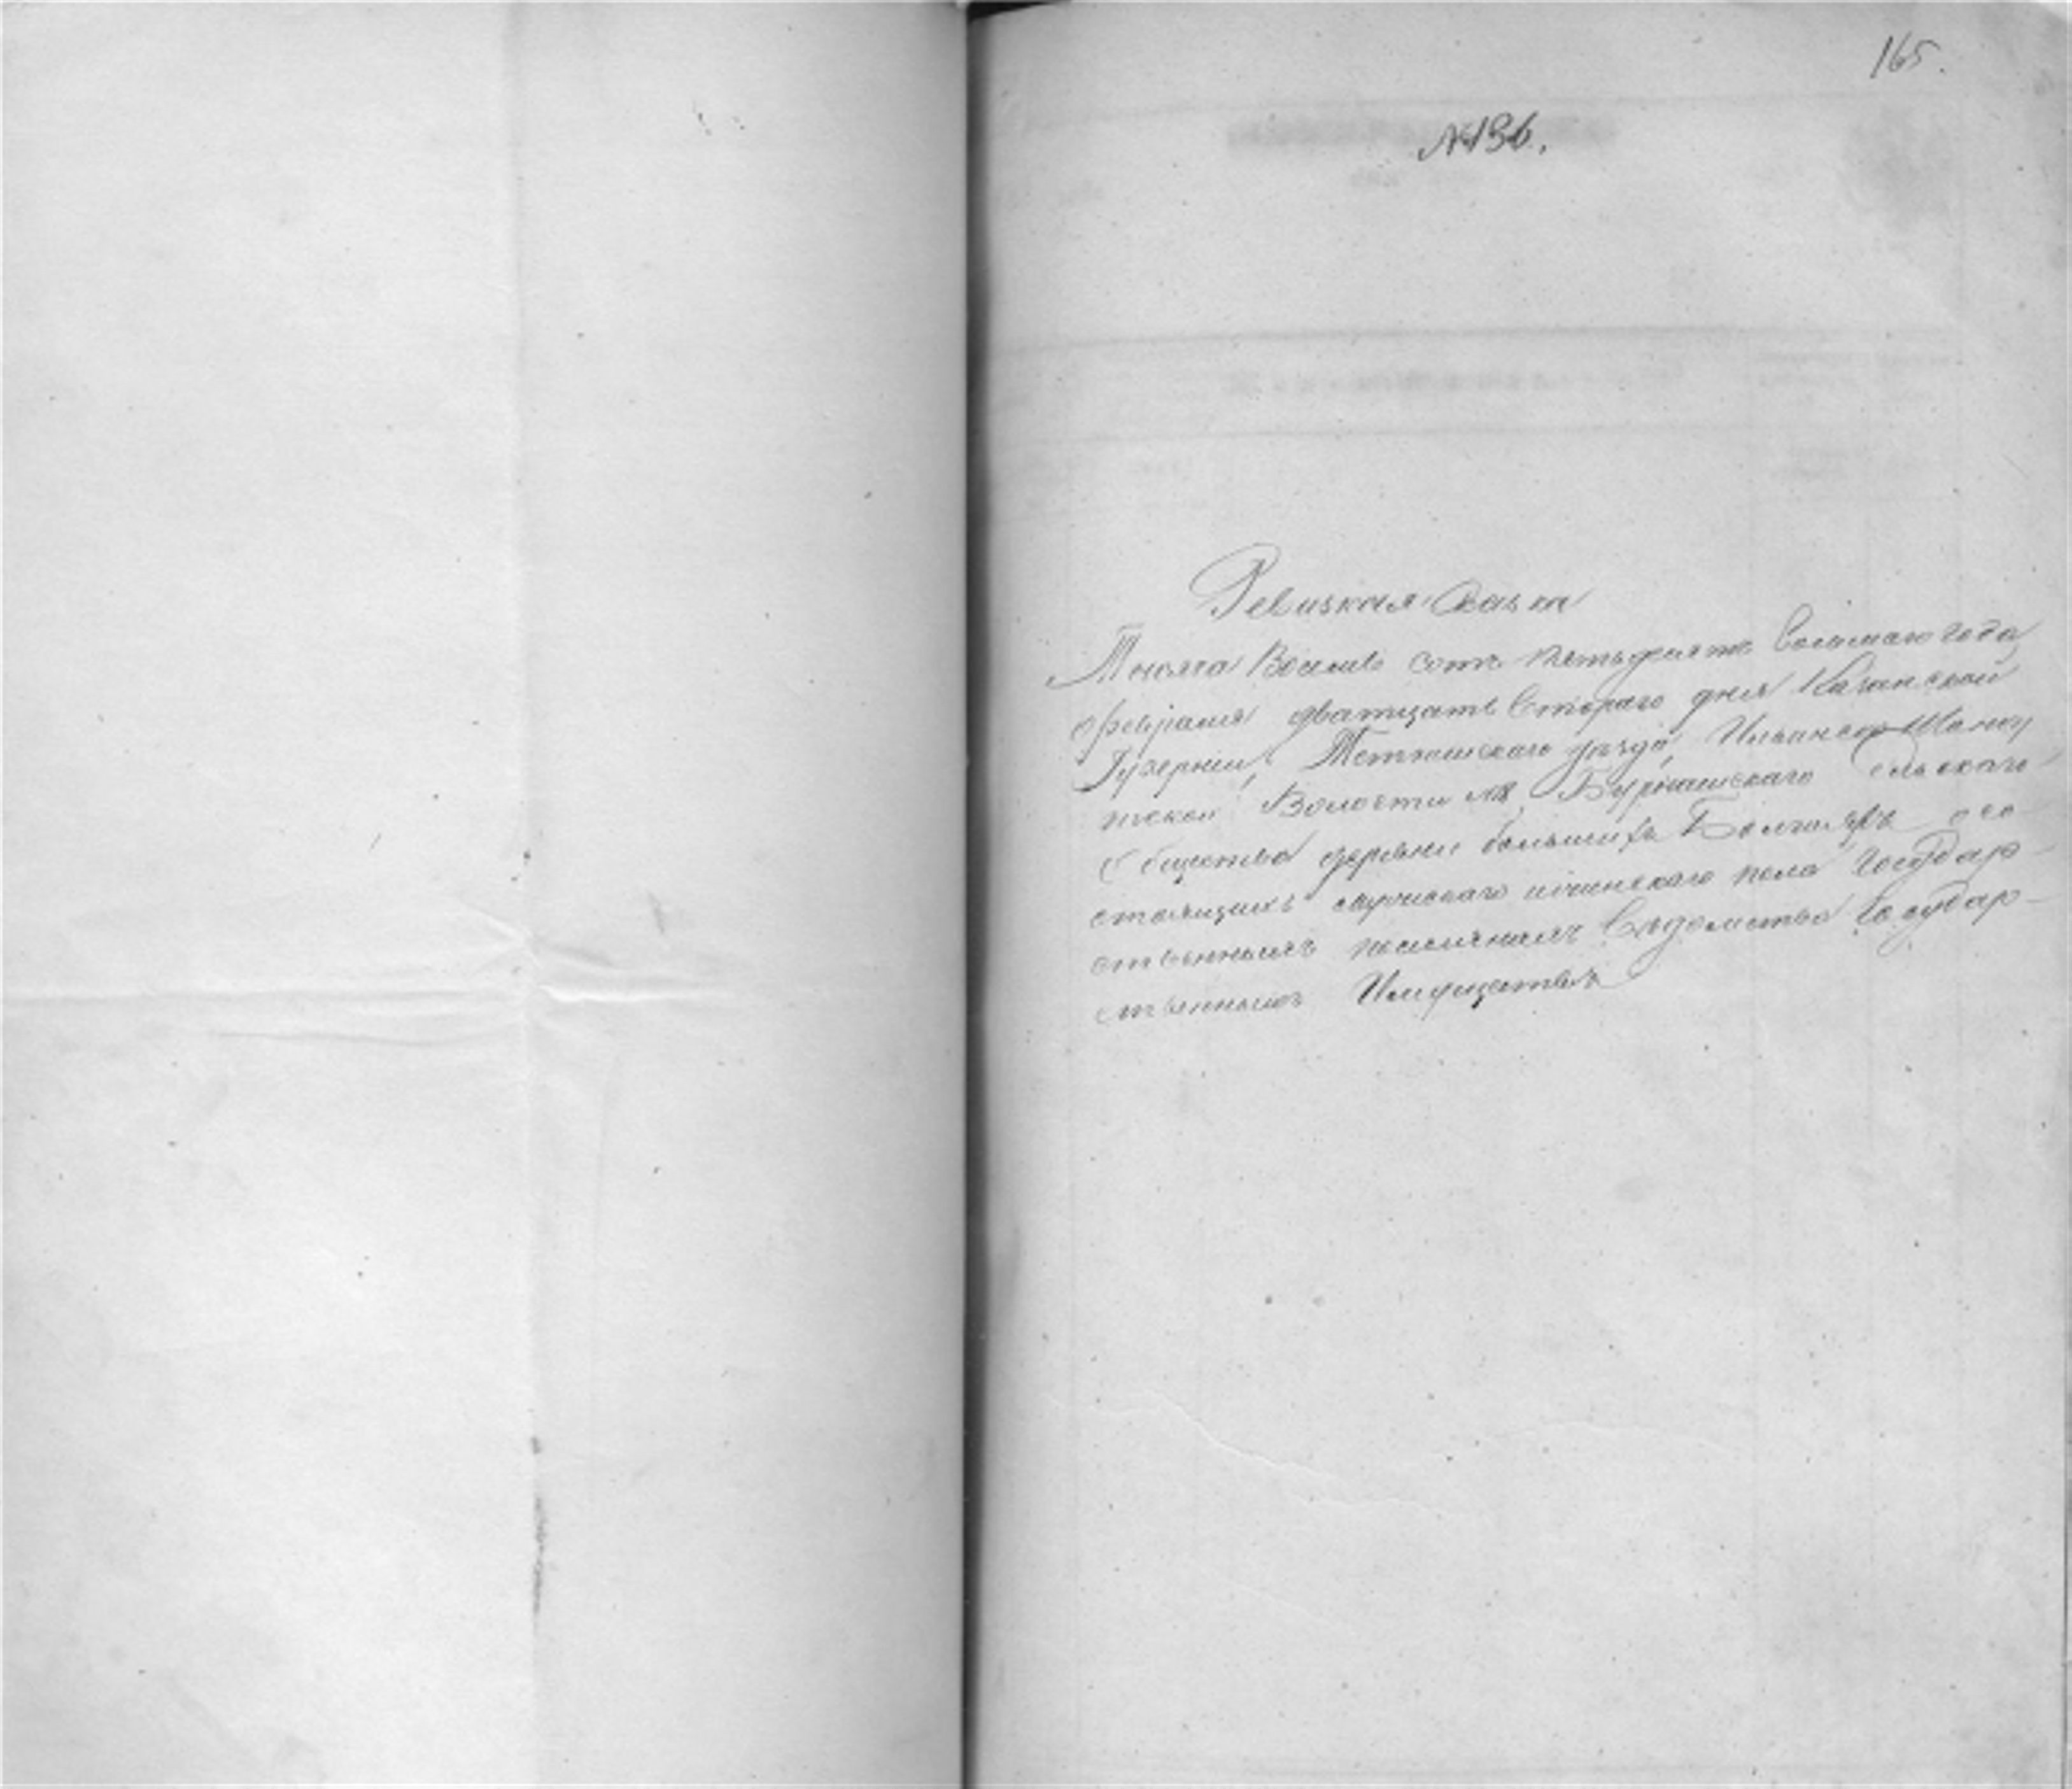 165.
№136.
Ревизская Сказка
Тысяча Восемь сотъ пятьдесятъ восьмаго года,
Февраля двадцать втораго дня Казанской
Губерніи, Тетюшскаго уѣзда, Ильинско-Шонгу
тской Волости Бурнашскаго Сельскаго
Общества деревни большихъ Болгояръ о со
стоящихъ мужескаго и женскаго пола Государ-
ственныхъ Вѣдомства Государ-
ственныхъ Имуществъ